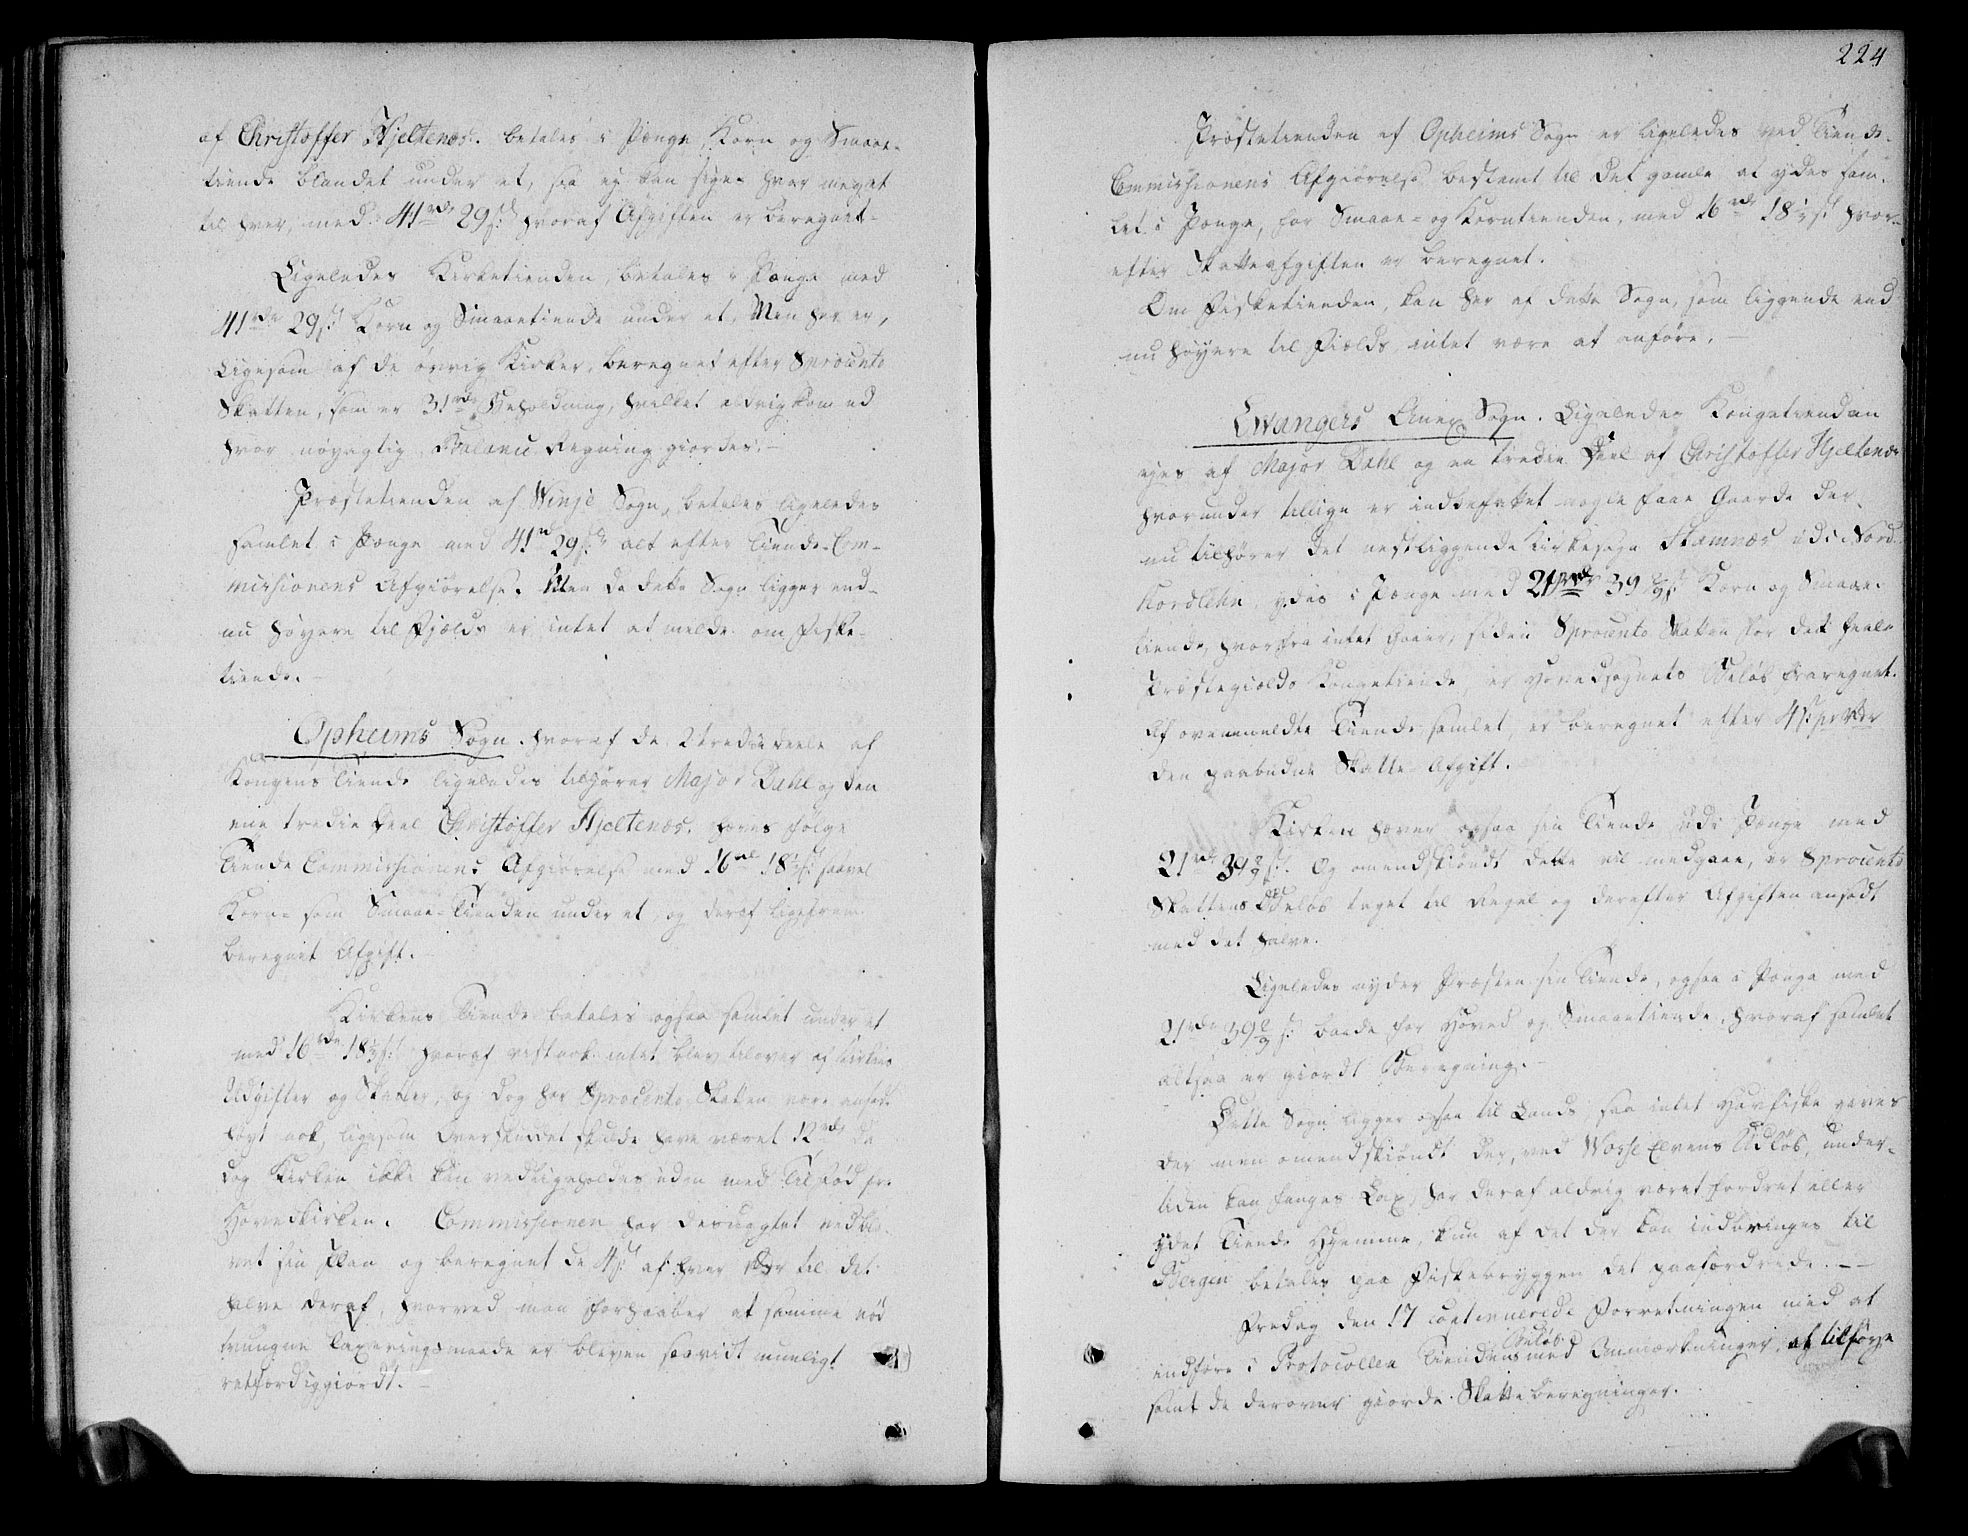 af Christoffer Hjeltenæs. betales i Penge, Korn og Smaae-
tiende blandet under et, saa ej kan siges hvor meget
til hver, med 41 rdr 29 s: hvoraf Afgiften er beregnet-
Ligeledes Kirketienden, betales i Penge med
41 rdr 29 s: Korn og Smaaetiende under et, Men her er,
Ligesom af de øvrig Kirker, beregnet efter 8procento
Skatten, som er 31 rdr Beholdning, hvilket aldrig kom ud
hvor nøyagtig Balance Regning giordes.-
Præstetienden af Winje Sogn, betales ligeledes
samlet i Penge med 41 rd 29 s: alt efter Tiende-Com-
missionens Afgiørelse. Men da dette Sogn ligger end-
nu høyere til Fjelds er intet at melde om Fiske-
tiende.-
Opheims Sogn. hvoraf de 2 tredie deele af
Kongens Tiende ligeledes tilhører Major Dahl og den
ene tredie Deel Christoffer Hjeltenæs, hæves følge
Tiende Commissionens Afgiørelse med 16 rd 18½ s: saavel
Korn- som Smaae-Tienden under et, og deraf ligefrem
beregnet Afgift.-
Kirkens Tiende betales ogsaa samlet under et
med 16 rdr 18½ s: hvoraf vist nok intet blev tilovers af Kirkens
Udgifter og Skatter, og dog har 8procento Skatten være ansadt
høyt nok, ligesom Overskuddet skulde have været 12 rdr da
dog Kirken ikke kan vedligeholdes uden med Tilskød fra
Hovedkirken. Commissionen har deruagtet vedble-
vet sin Plan og beregnet de 4 s: af hver Rdr til det
halve deraf, hvorved man forhaaber at samme nød
tvungne Taxeringsmaade er bleven saavidt mueligt
retfærdiggiordt.-
224
Præstetienden af Opheims Sogn er ligeledes ved Tiende-
Commissionens Afgiørelse bestemt til det gamle at ydes sam-
let i Penge, for Smaae- og Korntienden, med 16 rdr 18½ s: hvor-
efter Skatteafgiften er beregnet.
Om Fisketienden, kan her af dette Sogn, som liggende end
nu høyere til Fields, intet være at anføre.-
Evangers Anex Sogn. Ligeledes Kongetienden
eyes af Major Dahl og en tredie Deel af Christoffer Hjeltenæs
hvorunder tillige er indbefattet nogle faae Gaarde der
nu tilhører det nestliggende Kirkesogn Stamnæs udi Nord-
Hordlehn, ydes i Penge med 21 rdr 39 s: Korn og Smaae-
tiende, hvorfra intet gaaer, siden 8procento Skatten for det heele
Præstegields Kongetiende, er Hovedsognets Beløb fraregnet.
Af ovenmeldte Tiende samlet, er beregnet efter 4 s: pr Rdr
den paabudne Skatte Afgift.
Kirken hæver ogsaa sin Tiende udi Penge med
21 rdr 39 s: Og omendskiøndt dette vil medgaae, er 8procento
Skattens Beløb taget til Regel og derefter Afgiften ansadt
med det halve.
Ligeledes nyder Præsten sin Tiende, ogsaa i Penge med
21 rdr 39 s: baade for Hoved og Smaaetiende, hvoraf samlet
altsaa er giordt Beregning.-
Dette Sogn ligger ogsaa til Lands, saa intet Havfiske haves
der men omendskiøndt der, ved Wosse Elvens Udløb, under-
tiden kan fanges Lax, har deraf aldrig været fordret eller
ydet Tiende Hjemme, kun af det der kan indbringes til
Bergen betales paa Fiskebryggen det paafordrede.--
Fredag den 17 continuerede Forretningen med at
indføre i Protocollen Tiendens Beløb med Anmærkninger, at tilføye
samt de derover giorde Skatte beregninger.